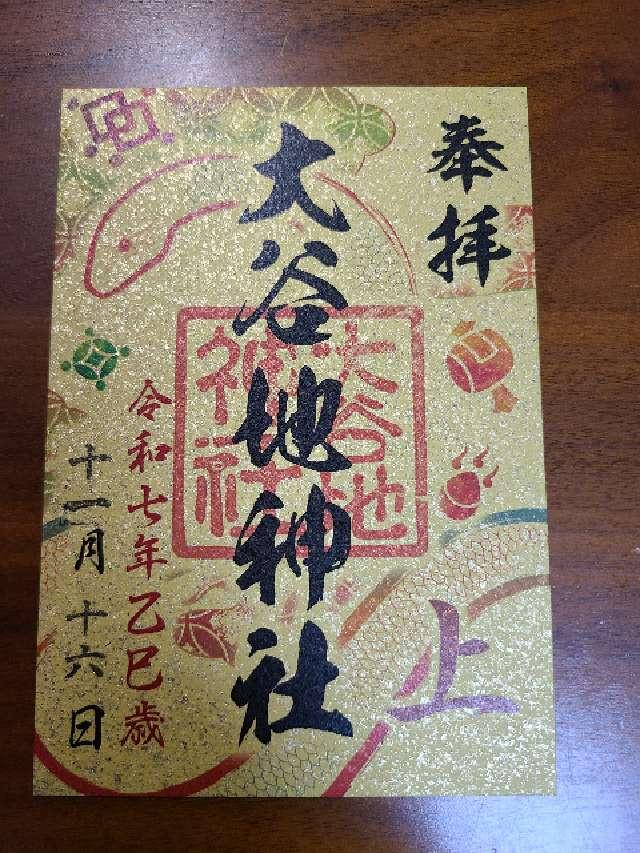 奉拝
大谷地神社
大谷地
神社
上
令和七年乙巳歳
十一月十六日